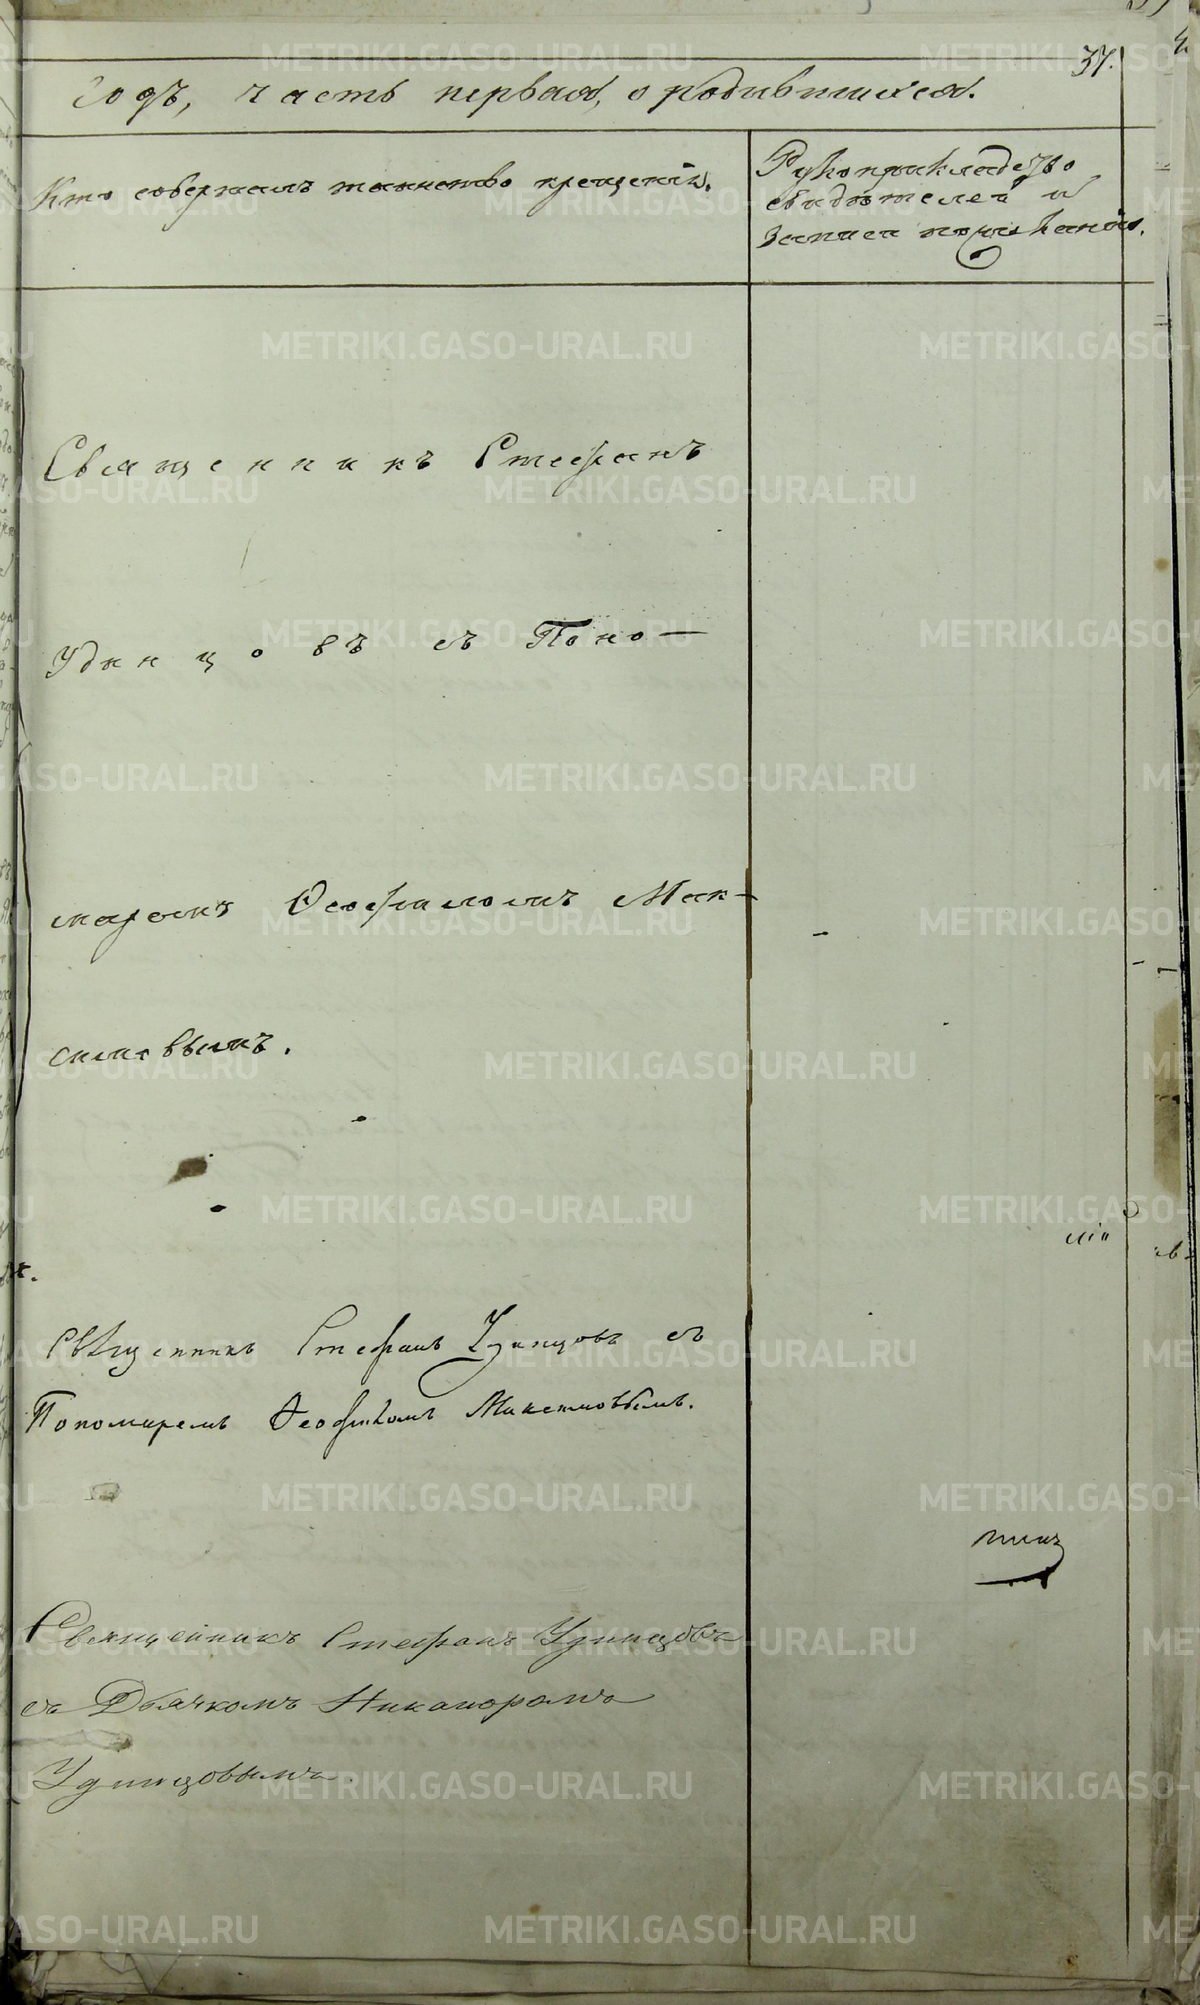 37.
годъ, часть первая, о родившихся.
Кто совершалъ таинство крещенія.
Рукоприкладство
свидѣтелей и
записи по желанію.
Священникъ Стефанъ
Удинцовъ съ Поно-
маремъ Ѳеофиломъ Мак-
симовымъ.
Священникъ Стефанъ Удинцовъ съ
Пономаремъ Ѳеофиломъ Максимовымъ.
Священникъ Стефанъ Удинцовъ
съ Дьячкомъ Никаноромъ
Удинцовымъ.
METRIKI.GASO-URAL.RU